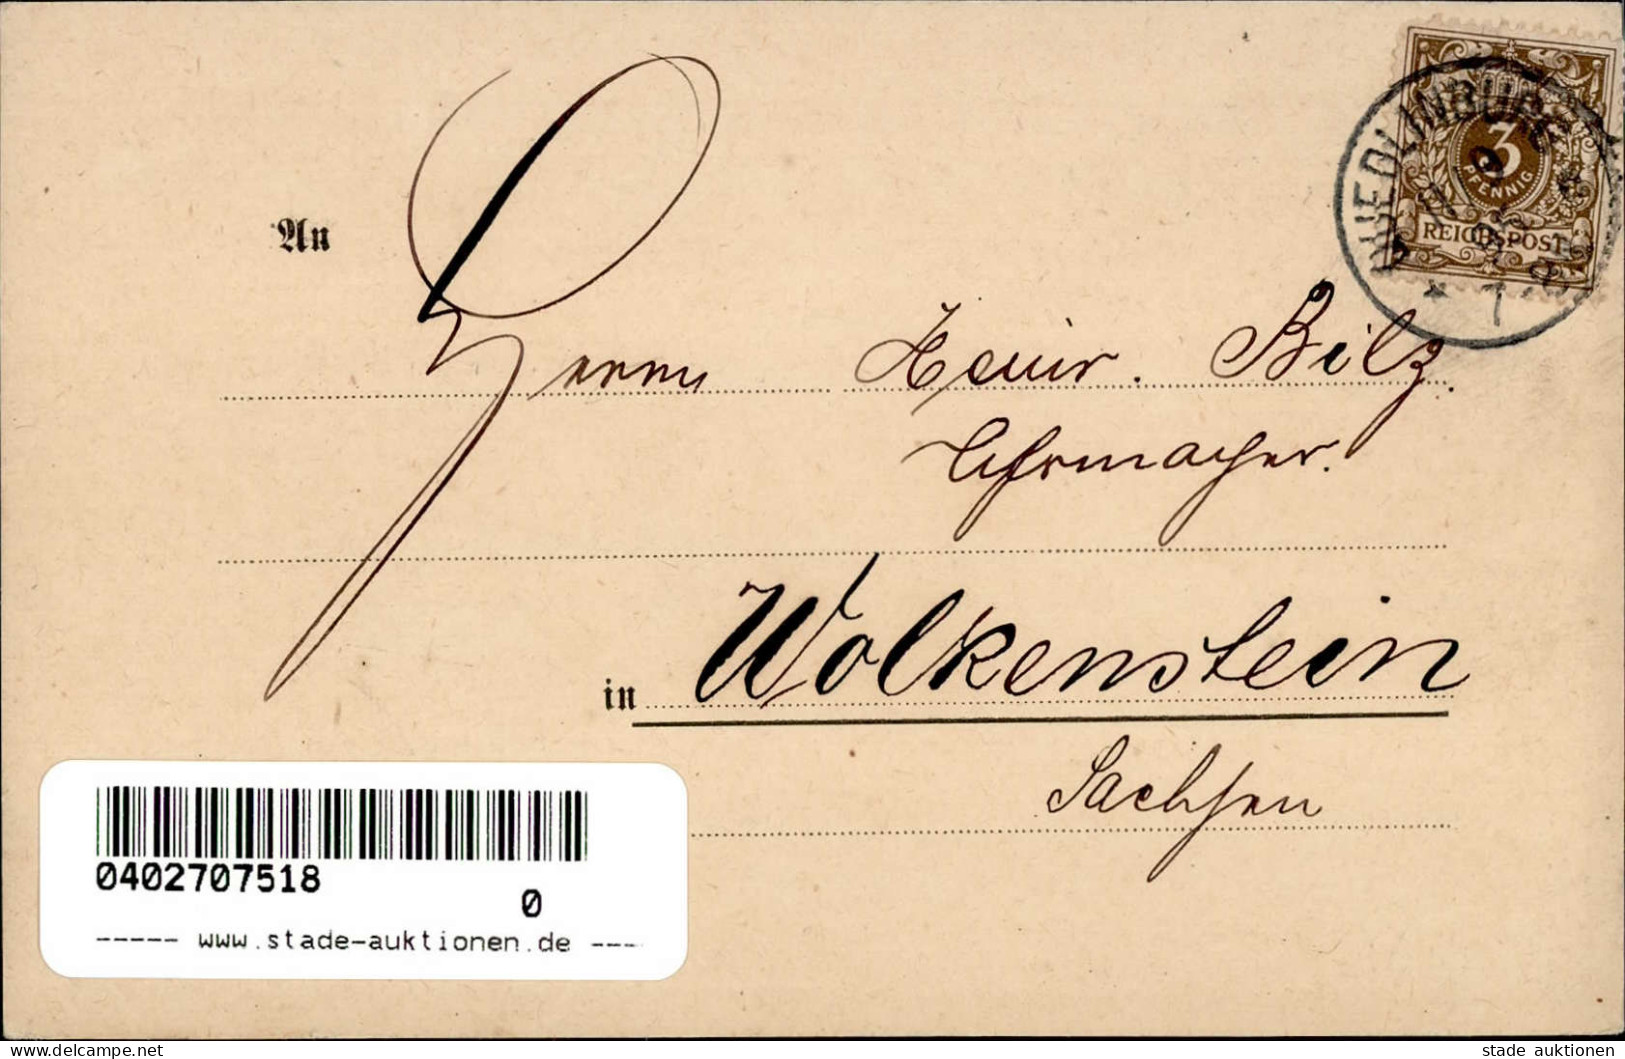 QUEDLINBURG
* 1
3
PFENNIG
REICHSPOST
An
Herrn Heinr. Bilz.
Uhrmacher.
in Wolkenstein
Sachsen
0402707518
0
----- www.stade-auktionen.de ----
delcampe.net
stade auktionen